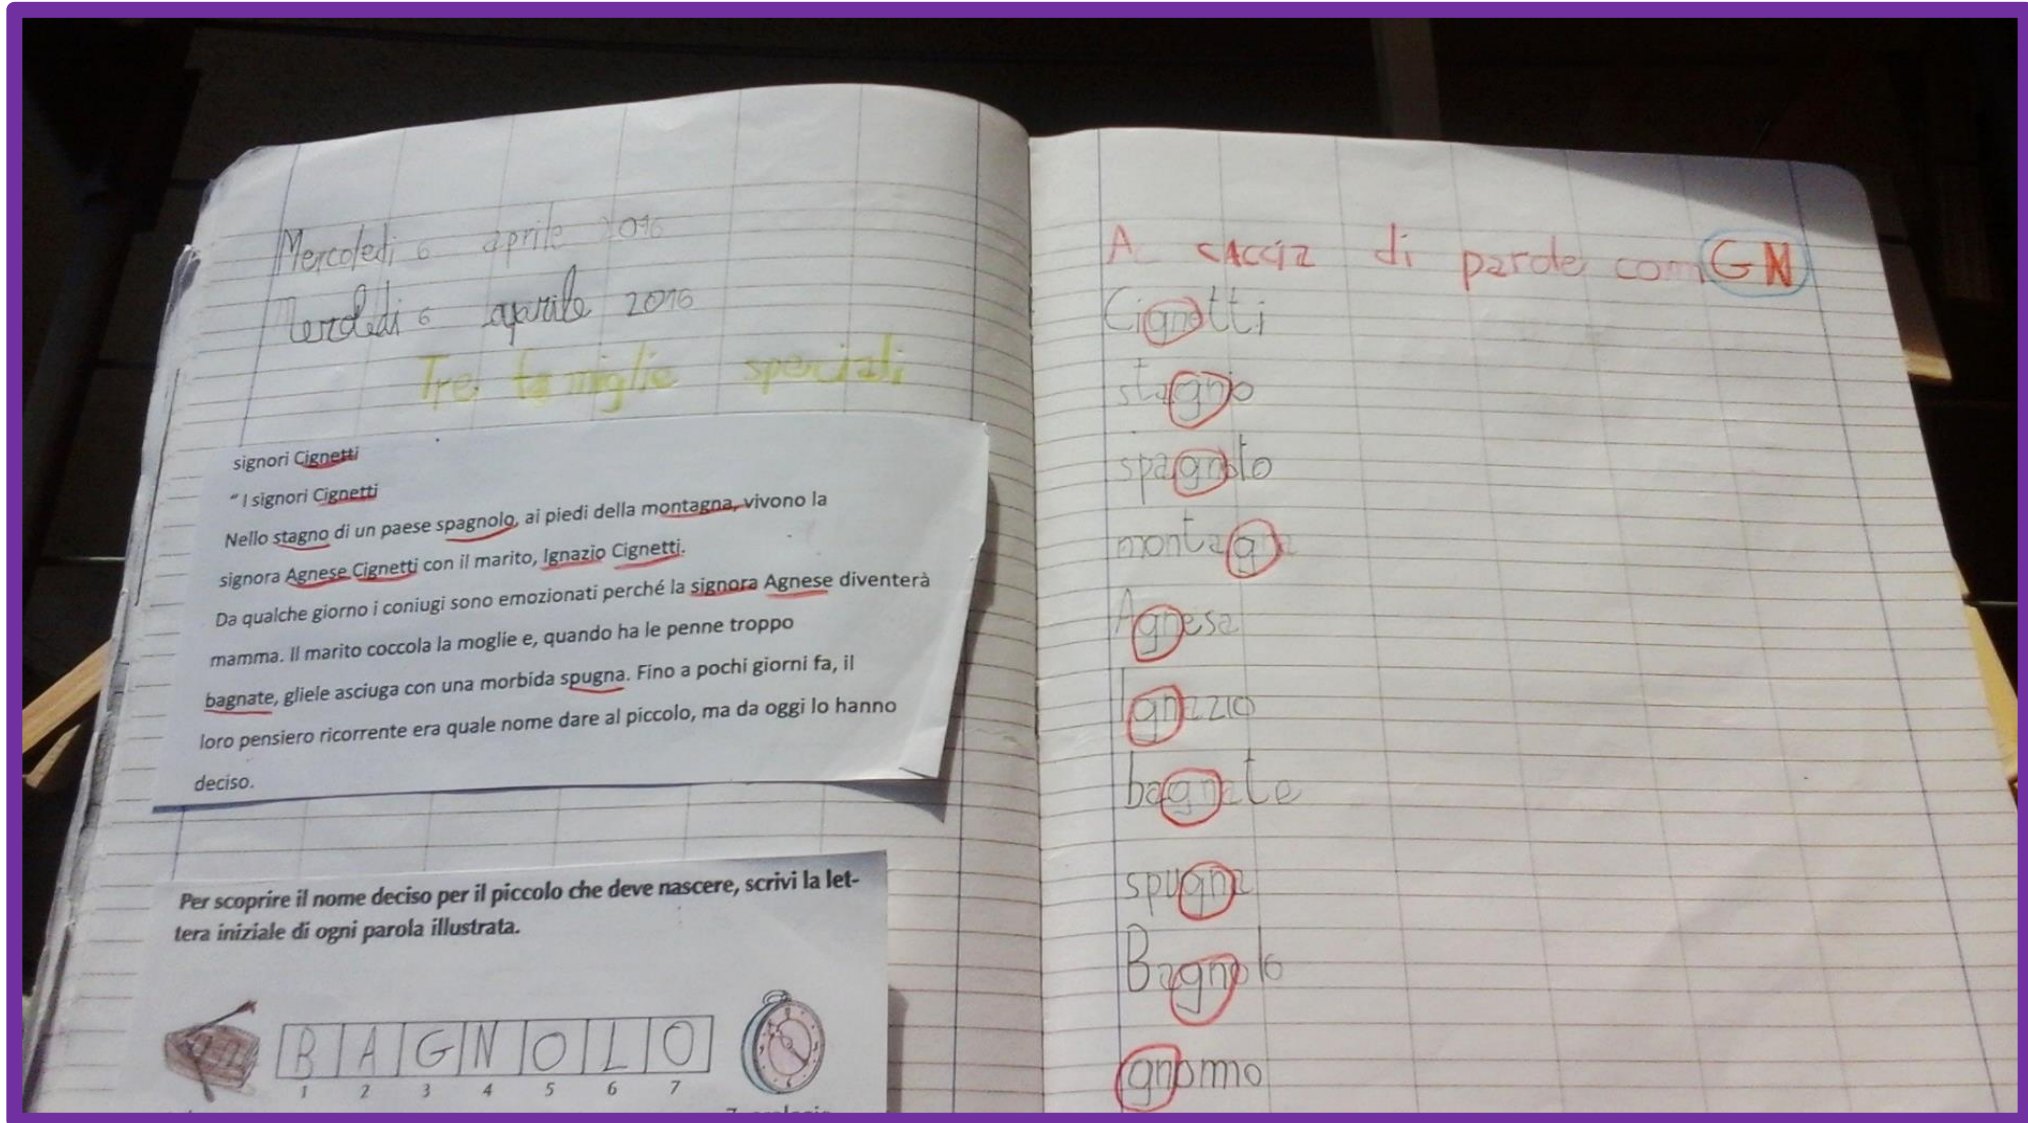 Mercoledi 6 aprile 2016
Mercoledi 6 aprile 2016
Tre famiglie speciali
signori Cignetti
“ I signori Cignetti
Nello stagno di un paese spagnolo, ai piedi della montagna, vivono la
signora Agnese Cignetti con il marito, Ignazio Cignetti.
Da qualche giorno i coniugi sono emozionati perché la signora Agnese diventerà
mamma. Il marito coccola la moglie e, quando ha le penne troppo
bagnate, gliele asciuga con una morbida spugna. Fino a pochi giorni fa, il
loro pensiero ricorrente era quale nome dare al piccolo, ma da oggi lo hanno
deciso.
Per scoprire il nome deciso per il piccolo che deve nascere, scrivi la let-
tera iniziale di ogni parola illustrata.
B A G N O L O
1 2 3 4 5 6 7
A caccia di parole con GN
Cignetti
stagno
spagnolo
montagna
Agnese
Ignazio
bagnate
spugna
Bagnolo
gnomo